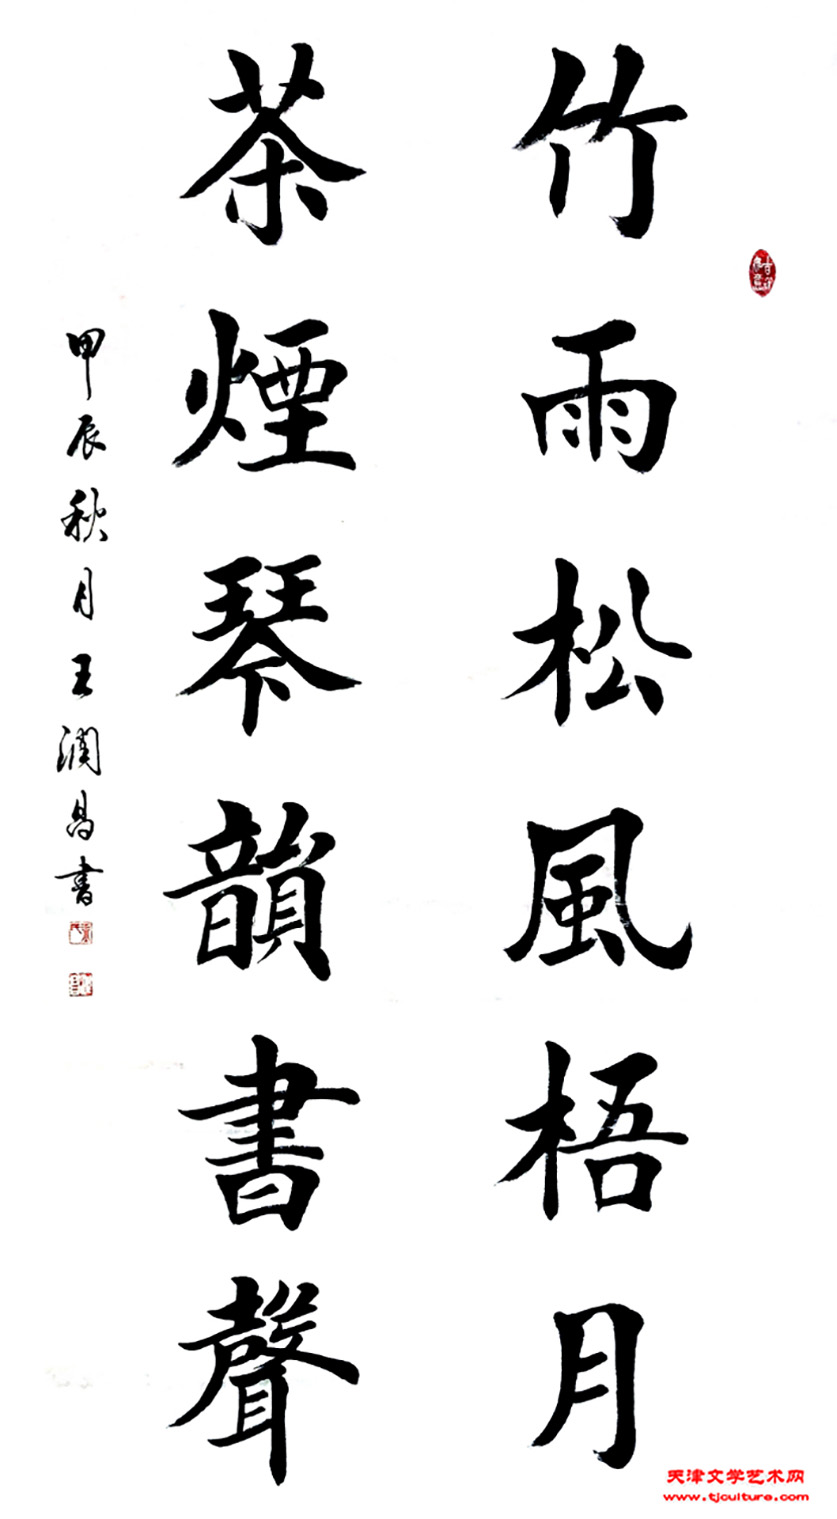 竹雨松風梧月
茶煙琴韻書聲
甲辰秋月王潤昌書
天津文学艺术网
www.tjculture.com